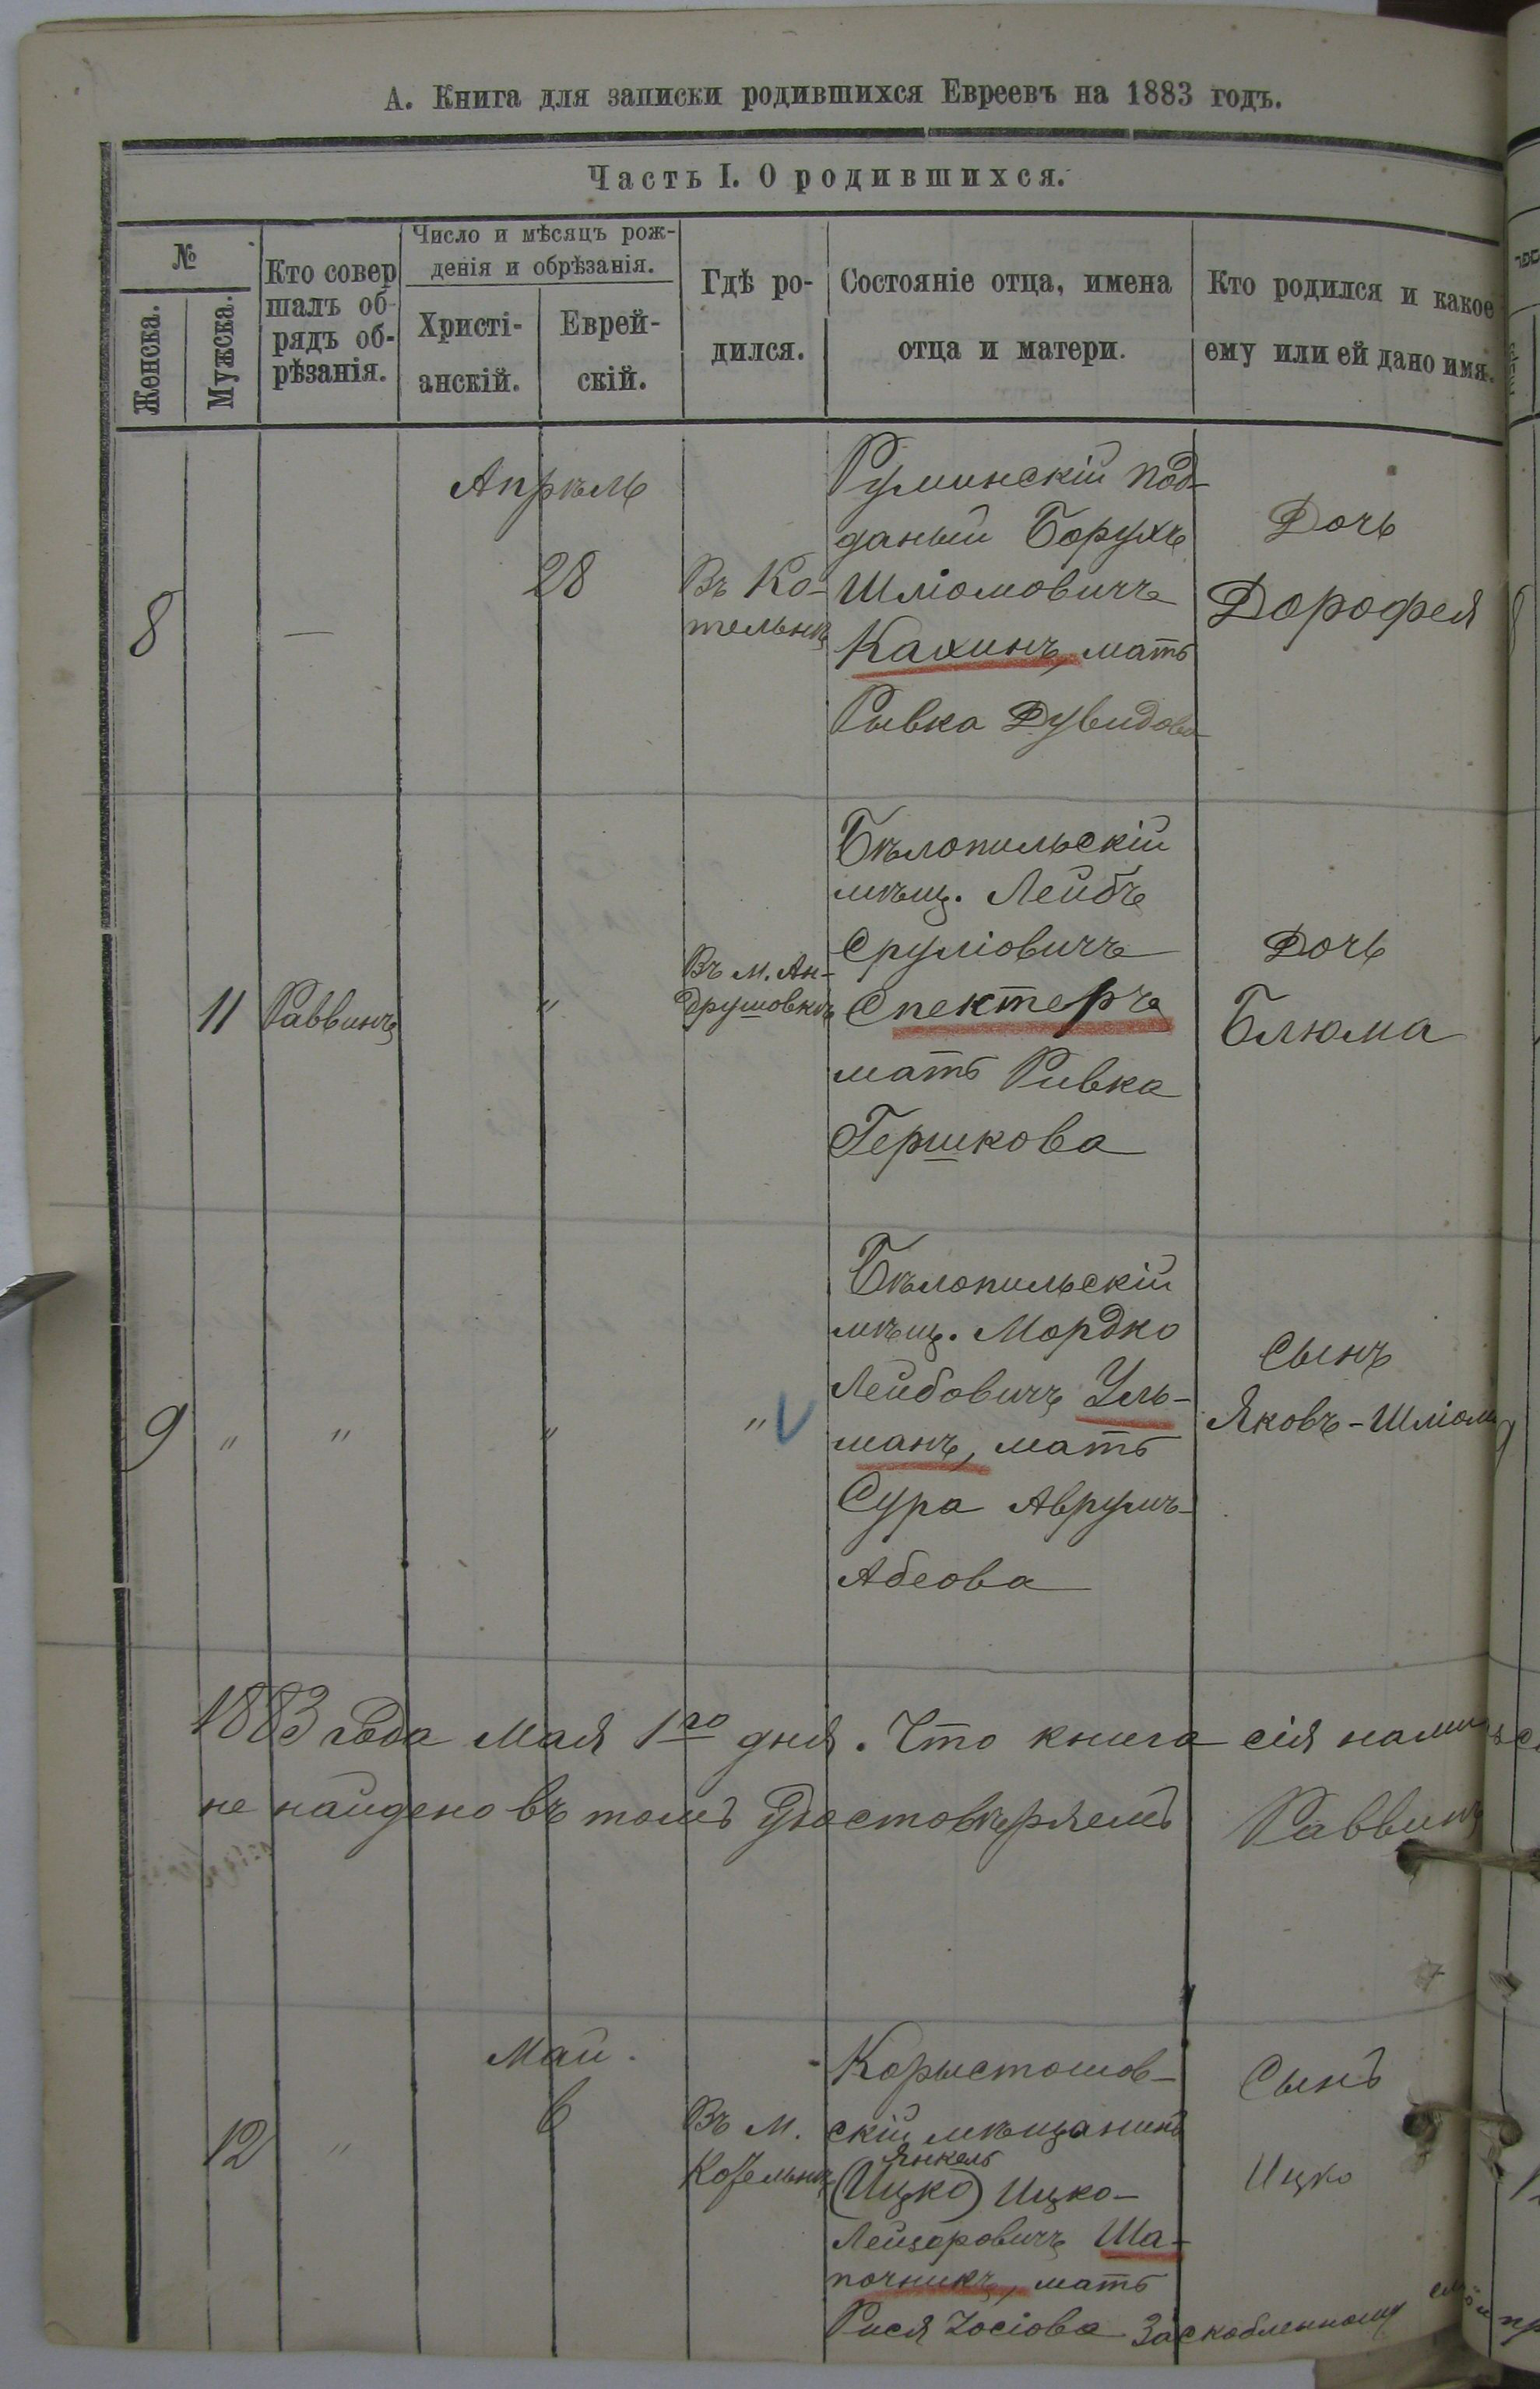 А. Книга для записки родившихся Евреевъ на 1883 годъ.
Часть I. О родившихся.
№
Женска.
Мужска.
Кто совер
шалъ об-
рядъ об-
рѣзанія.
Число и мѣсяцъ рож-
денія и обрѣзанія.
Христі-
анскій.
Еврей-
скій.
Гдѣ ро-
дился.
Состояніе отца, имена
отца и матери.
Кто родился и какое
ему или ей дано имя.
8
—
Апрѣль
28
Въ Ко-
тельнѣ
Румынскій под-
даный Борухъ
Шліомовичъ
Кахинъ, мать
Рывка Дувидова
Дочь
Дорофея
11
Раввинъ
"
Въ м. Ан-
друшовкѣ
Бѣлопильскій
мѣщ. Лейбъ
Сруліовичъ
Спекторъ
мать Ривка
Гершкова
Дочь
Блюма
9
"
"
"
"
Бѣлопильскій
мѣщ. Мордко
Лейбовичъ Уль-
манъ, мать
Сура Аврумъ-
Абеова
Сынъ
Яковъ-Шліома
1883 года Мая 1го дня. Что книга сія нами
не найдено въ томъ удостовѣряемъ Раввинъ
12
"
Май.
6
Въ м.
Котельнѣ
Корыстошов-
скій мѣщанинъ
Янкель
(Ицко) Ицко-
Лейзоровичъ Ша-
почникъ, мать
Рися Іосіова
Сынъ
Ицко
Заскобленному